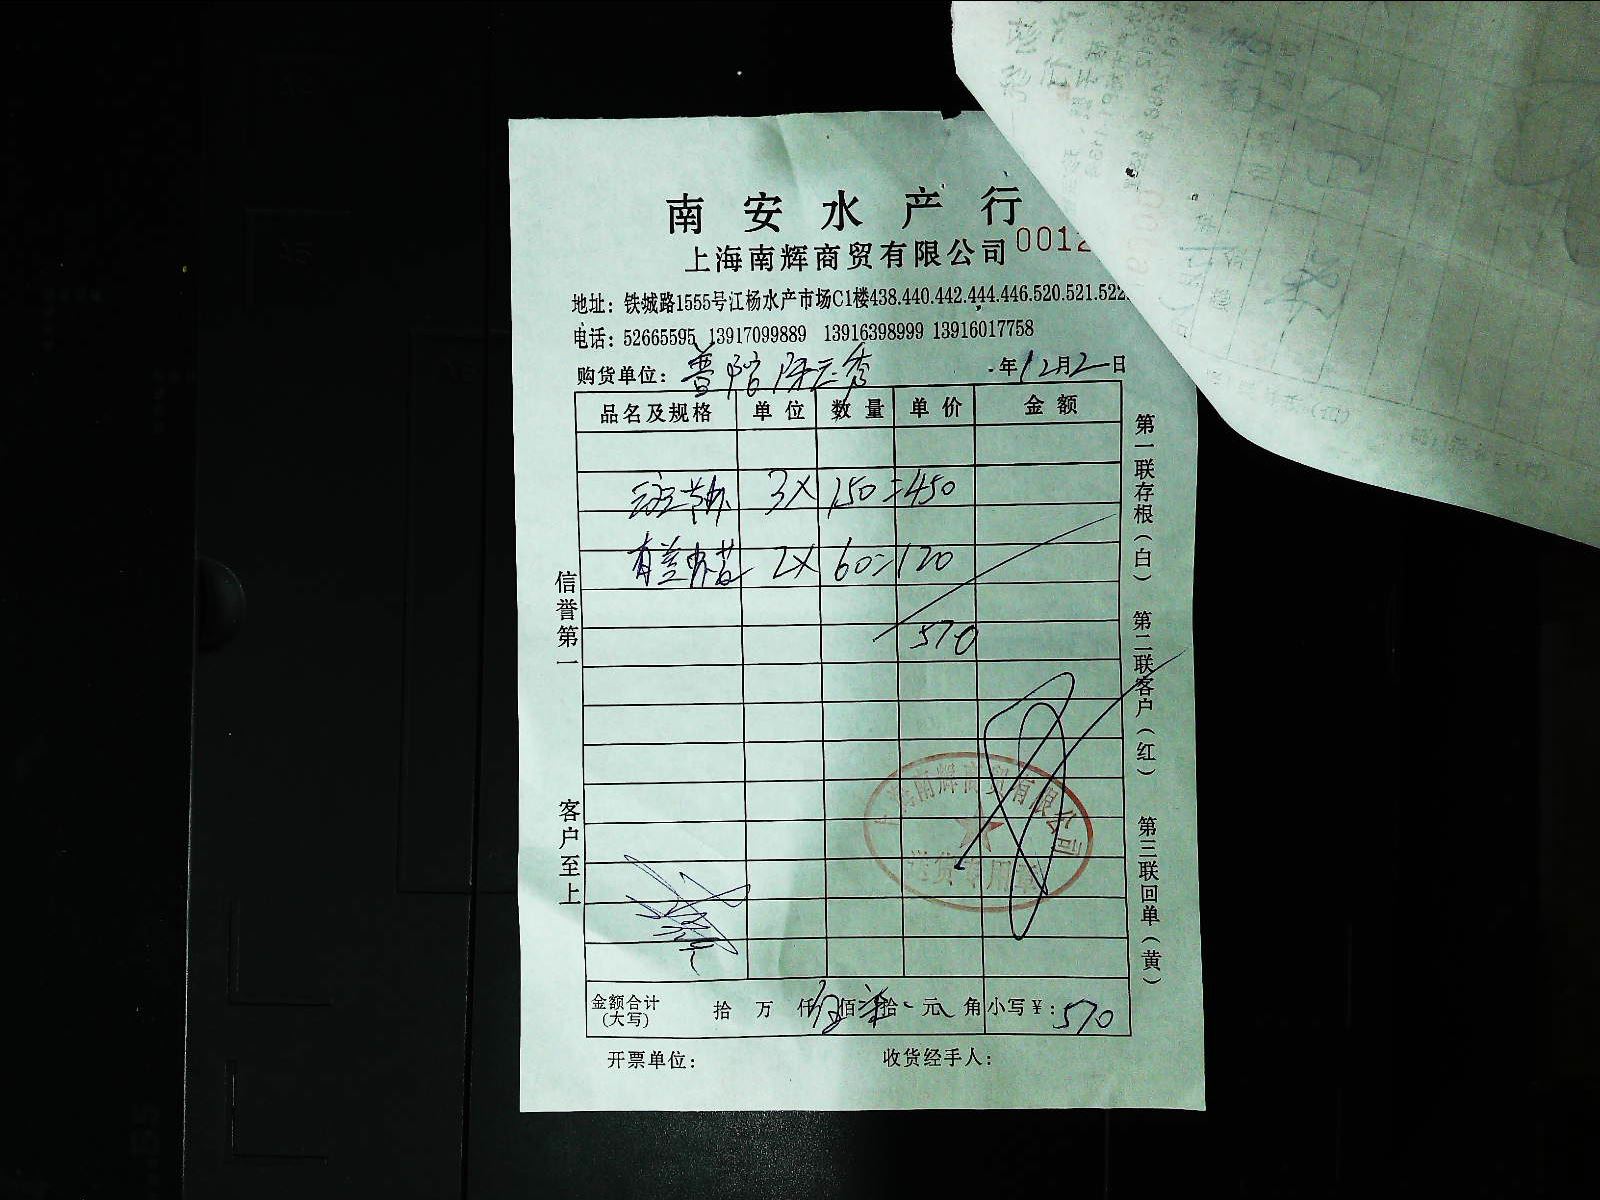 南安水产行
上海南辉商贸有限公司 0012
地址：铁城路1555号江杨水产市场C1楼438.440.442.444.446.520.521.522.
电话：52665595 13917099889 13916398999 13916017758
购货单位：普陀 年12月2日
品名及规格 单位 数量 单价 金额
3X 150=450
2X 60=120
570
信誉第一
客户至上
第一联存根（白） 第二联客户（红） 第三联回单（黄）
上海南辉商贸有限公司
送货专用章
金额合计（大写） 拾 万 仟伍佰柒拾 元 角 小写￥：570
开票单位： 收货经手人：